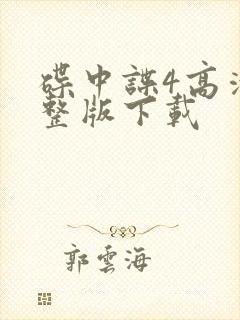 碟中諜4高清
整版下載
郭雲海